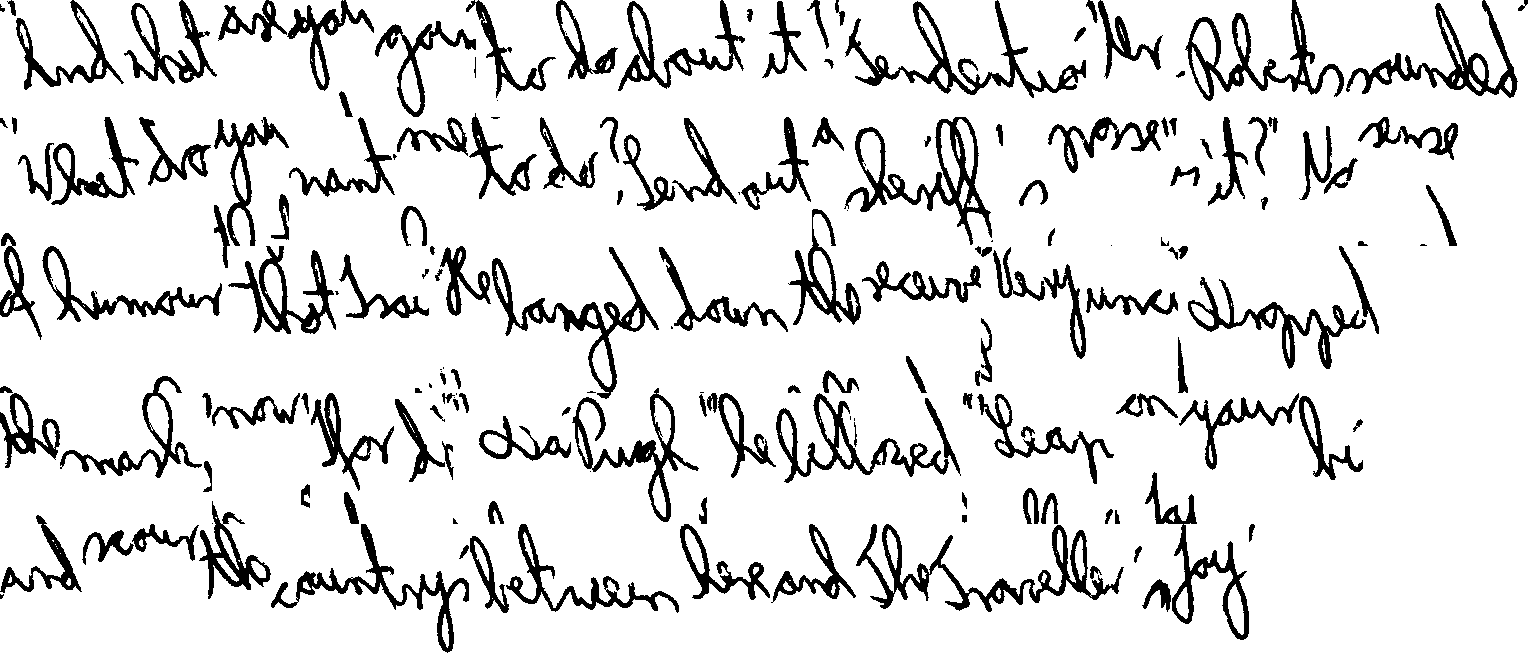 "And what are you going to do about it?" Tendentio " Mr. Roberts sounded
"What do you want me to do? Send out a sheriff's posse" it?" No sense
of humour that "He banged down the receive "Very funci" dropped
the mask, 'now for " Dai Pugh "he bellowed "Leap on your bi
and scour the country between here and The Traveller's Joy'